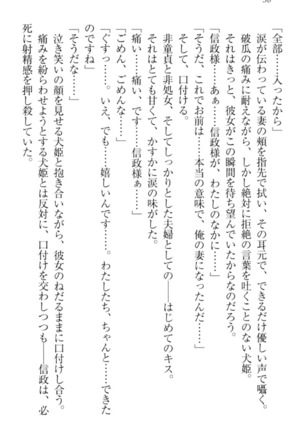 「全部……入ったから」
涙が伝わっている妻の頬を指先で拭い、その耳元で、できるだけ優しい声で囁く。
破瓜の痛みに耐えながら、しかし絶対に拒絶の言葉を吐くことのない犬姫。
それはきっと、彼女がこの瞬間を待ち望んでいたからなのだろう。
「信政様……あぁ……信政様が、わたしのなかに……」
「そうだ、これでお前は……本当の意味で、俺の妻になったんだ……」
そして、口付ける。
非童貞と非処女、そしてしっかりとした夫婦としての――はじめてのキス。
それはとても甘くて、かすかに涙の味がした。
「痛い……痛い、です……信政様ぁ……」
「ごめん、ごめんな……」
「ぐすっ……。いえ、でも……嬉しいんです……。わたしたち、ちゃんと……できた
のですね」
「そうだな……」
泣き笑いの顔を見せる犬姫と抱き合いながら、彼女のねだるままに口付けし合う。
痛みを紛らわせようとする犬姫とは反対に、口付けを交わしつつも――信政は、必
死に射精感を押し殺していた。